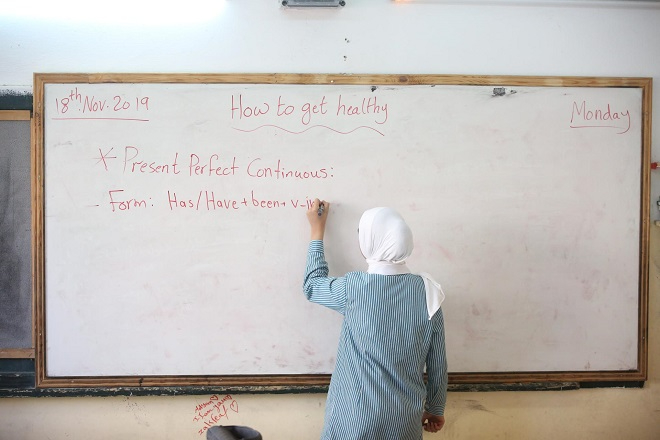 18th. Nov. 2019
How to get healthy
Monday
* Present Perfect Continuous:
- Form: Has/Have + been + v-in